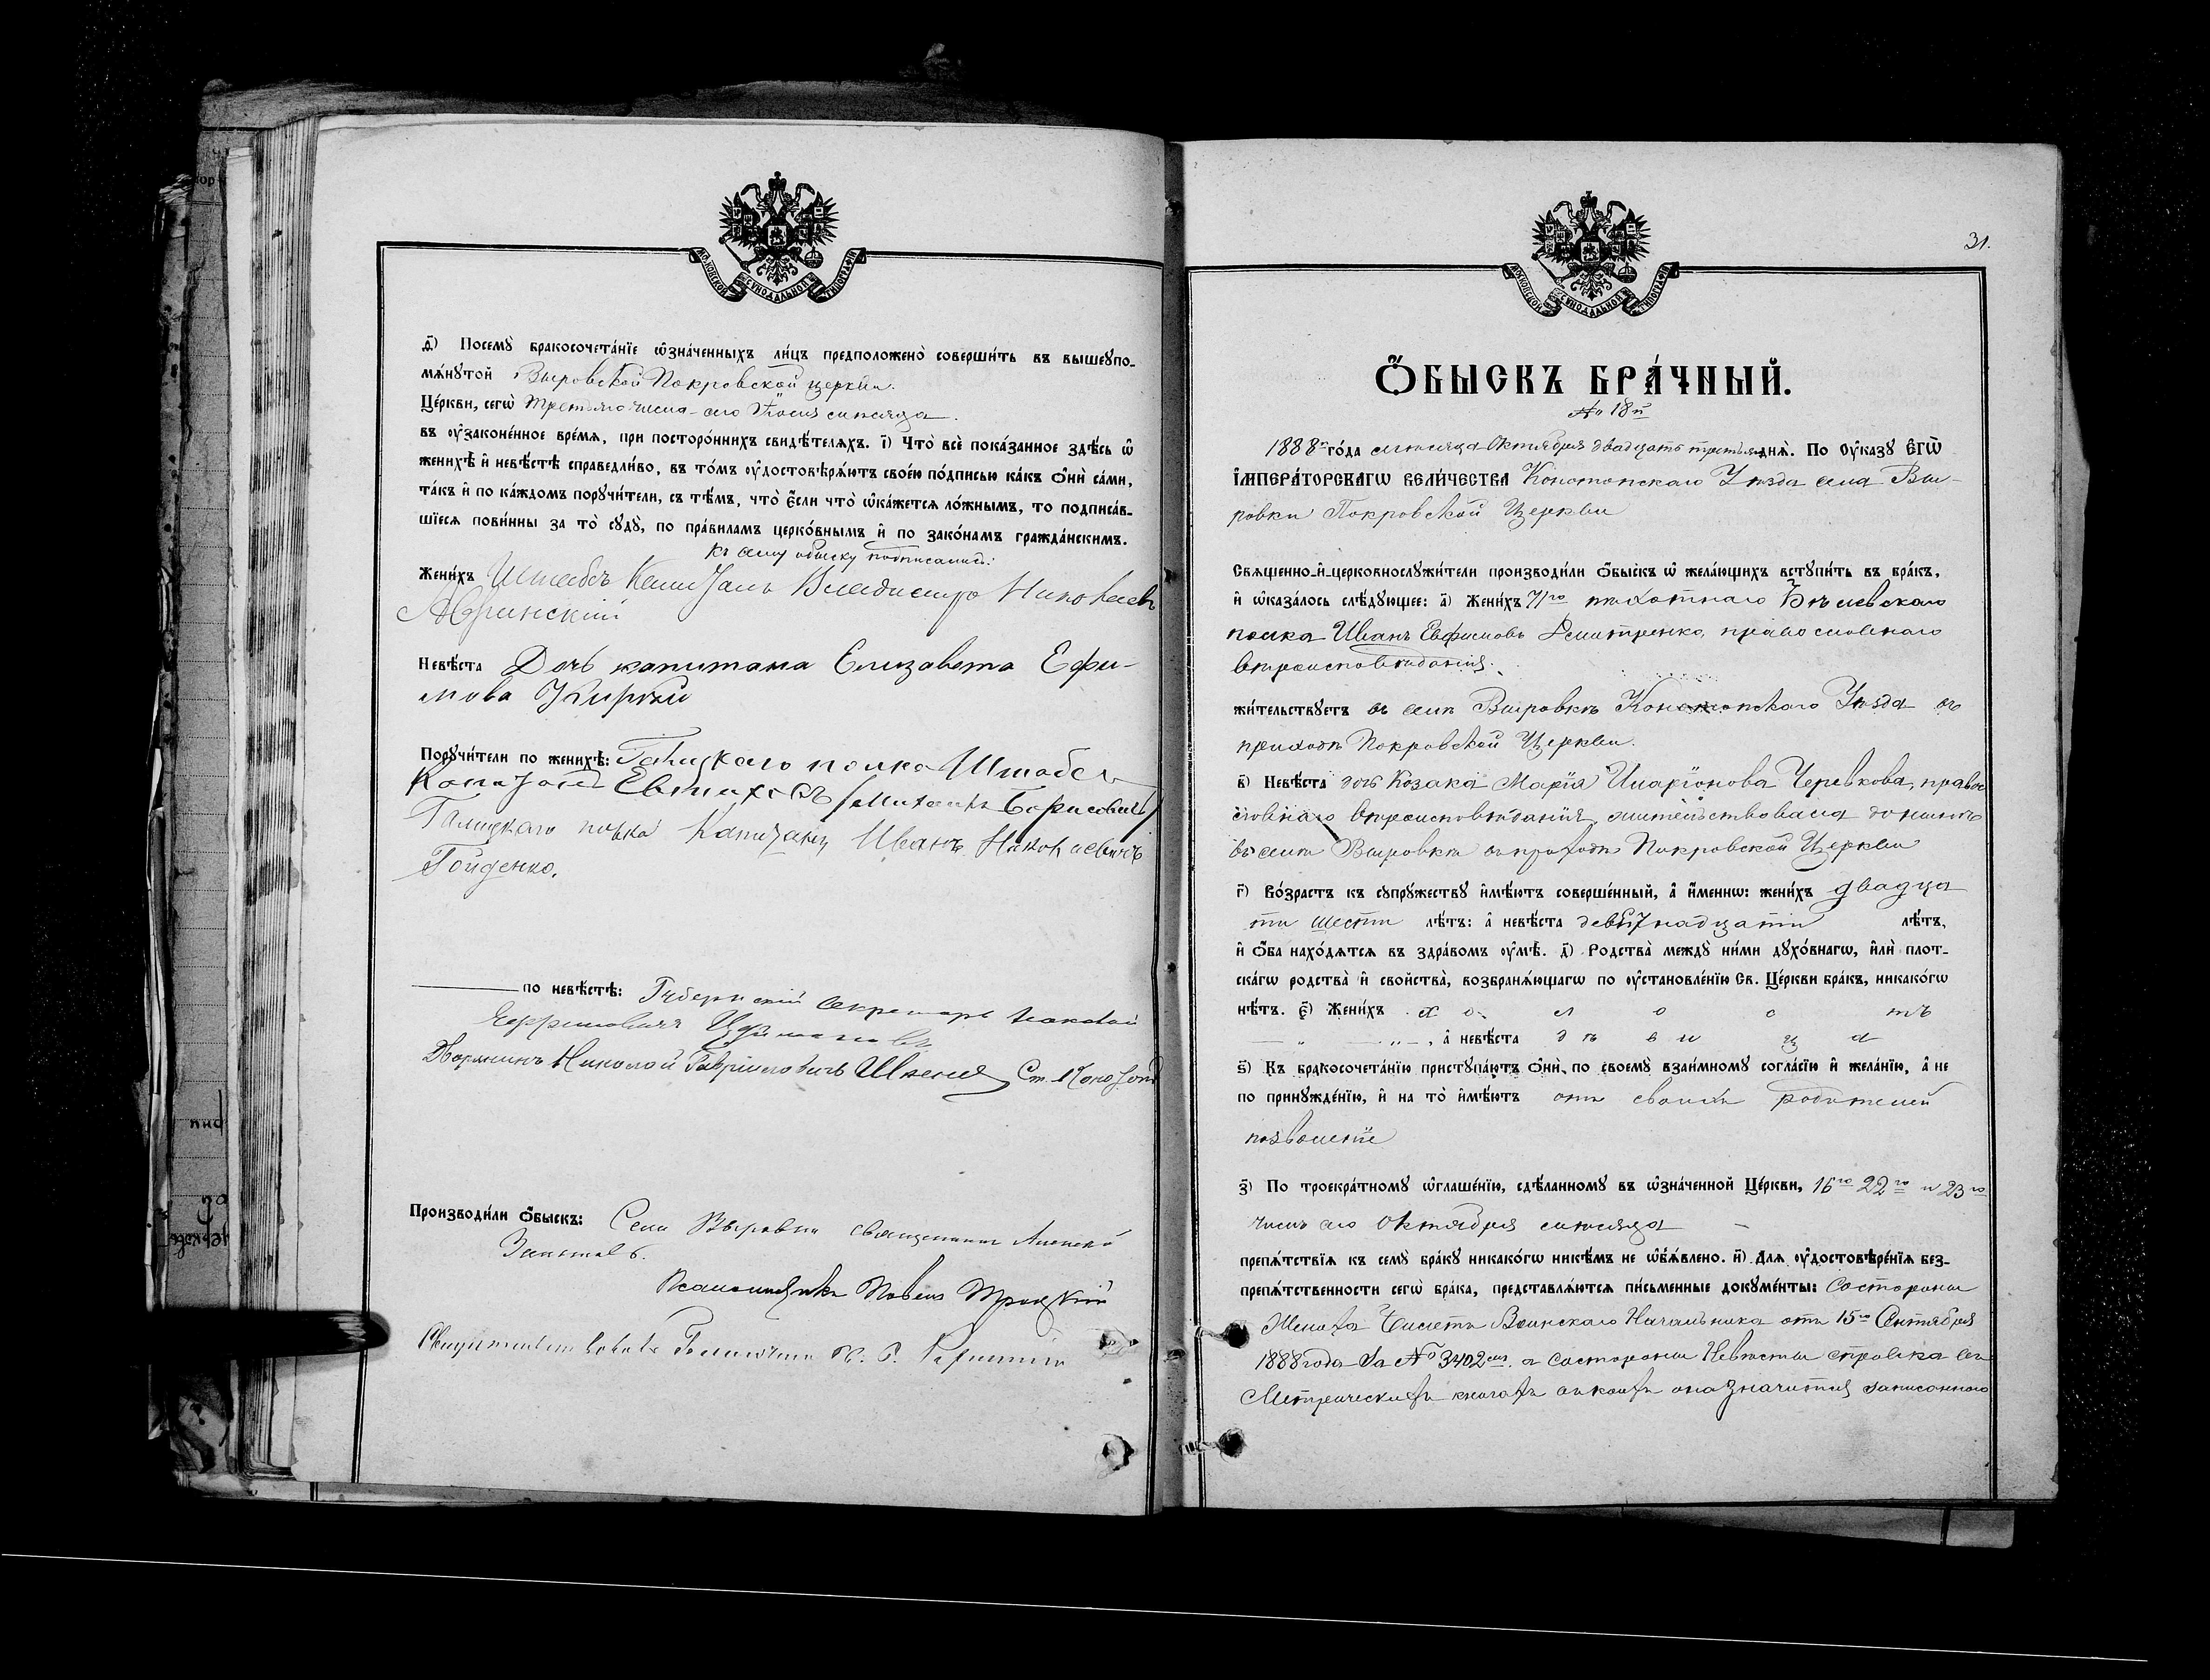 МОСКОВСКОЙ СѴНОДАЛЬНОЙ ТИПОГРАФІИ
д҃) Посемꙋ̀ бракосочета́нїе ѡ҆зна́ченныхъ ли́цъ предположено̀ соверши́ть въ вышеꙋпо-
мѧ́нꙋтой Выровской Покровской церкви.
Це́ркви, сегѡ̀ третьяго числа сего Іюля мѣсяца
въ ᲂу҆зако́ненное вре́мѧ, при посторо́ннихъ свидѣ́телѧхъ. і҃) Что̀ всѐ пока́занное здѣ́сь ѡ҆
женихѣ̀ и҆ невѣ́стѣ справедли́во, въ то́мъ ᲂу҆достовѣрѧ́ютъ свое́ю по́дписью ка́къ ѻ҆нѝ са́ми,
та́къ и҆ по ка́ждомъ порꙋчи́тели, съ тѣ́мъ, что̀ є҆́сли что̀ ѡ҆ка́жетсѧ ло́жнымъ, то подписа́в-
шїесѧ пови́нны за то̀ сꙋдꙋ̀, по пра́виламъ церко́внымъ и҆ по зако́намъ гражда́нскимъ.
къ сему обыску подписались:
Жени́хъ Штабсъ Капитанъ Владимиръ Николаевъ
Невѣ́ста Дочь капитана Елизавета Ефи-
мова
Порꙋчи́тели по женихѣ̀: Галицкаго полка Штабсъ
Капитанъ Михаилъ Борисовичъ
Галицкаго полка Капитанъ Иванъ Николаевичъ
Гойденко.
по невѣ́стѣ: Губернскій Секретарь
Ефимовичъ
Дворянинъ Николай Гавріиловичъ Ст. Конотопъ
Производи́ли ѻ҆́быскъ: Села Выровки священникъ Алексѣй
Псаломщикъ Павелъ Троцкій
31.
МОСКОВСКОЙ СѴНОДАЛЬНОЙ ТИПОГРАФІИ
Ѻ҆́БЫСКЪ БРА́ЧНЫЙ.
№ 18й
1888го го́да мѣсяца Октября двадцать третьяго днѧ̀. По ᲂу҆ка́зꙋ Є҆ГѠ̀
І҆МПЕРА́ТОРСКАГѠ ВЕЛИ́ЧЕСТВА Конотопскаго Уѣзда села Вы-
ровки Покровской Церкви
Свѧще́нно-и҆-церковнослꙋжи́тели производи́ли ѻ҆́быскъ ѡ҆ жела́ющихъ встꙋпи́ть въ бра́къ,
и҆ ѡ҆каза́лось слѣ́дꙋющее: а҃) Жени́хъ 71го пѣхотнаго Бѣлевскаго
полка Иванъ Евфимовъ Дмитренко, православнаго
вѣроисповѣданія.
жи́тельствꙋетъ въ селѣ Выровкѣ Конотопскаго Уѣзда въ
приходѣ Покровской Церкви.
в҃) Невѣ́ста дочь Козака Марія Иларіонова Черевкова, право
славнаго вѣроисповѣданія, жительствовала до нынѣ
въ селѣ Выровкѣ въ приходѣ Покровской Церкви
г҃) Во́зрастъ къ сꙋпрꙋ́жествꙋ и҆мѣ́ютъ соверше́нный, а҆ и҆́меннѡ: жени́хъ двадца
ти шести лѣ́тъ: а҆ невѣ́ста девятнадцати лѣ́тъ,
и҆ ѻ҆́ба нахо́дѧтсѧ въ здра́вомъ ᲂу҆мѣ̀. д҃) Родства̀ междꙋ̀ ни́ми дꙋхо́внагѡ, и҆лѝ плот-
ска́гѡ родства̀ и҆ свойства̀, возбранѧ́ющагѡ по ᲂу҆становле́нїю Св. Це́ркви бра́къ, никако́гѡ
нѣ́тъ. є҃) Жени́хъ холостъ
„ „ , а҆ невѣ́ста дѣвица
ѕ҃) Къ бракосочета́нїю пристꙋпа́ютъ ѻ҆нѝ, по своемꙋ̀ взаи́мномꙋ согла́сїю и҆ жела́нїю, а҆ не
по принꙋжде́нїю, и҆ на то̀ и҆мѣ́ютъ отъ своихъ родителей
позволеніе
з҃) По троекра́тномꙋ ѡ҆глаше́нїю, сдѣ́ланномꙋ въ ѡ҆зна́ченной Це́ркви, 16го 22го и 23го
числъ сего Октября мѣсяца
препѧ́тствїѧ къ семꙋ̀ бра́кꙋ никако́гѡ никѣ́мъ не ѡ҆б̾ѧ́влено. и҃) Длѧ ᲂу҆достовѣре́нїѧ без-
препѧ́тственности сегѡ̀ бра́ка, представлѧ́ютсѧ пи́сьменные докꙋме́нты: Состороны
Жениха билетъ Воинскаго Начальника отъ 15го Сентября
1888 года за № 3402мъ, а состороны Невѣсты справка въ
Метрическихъ книгахъ въ коихъ она значится записанною